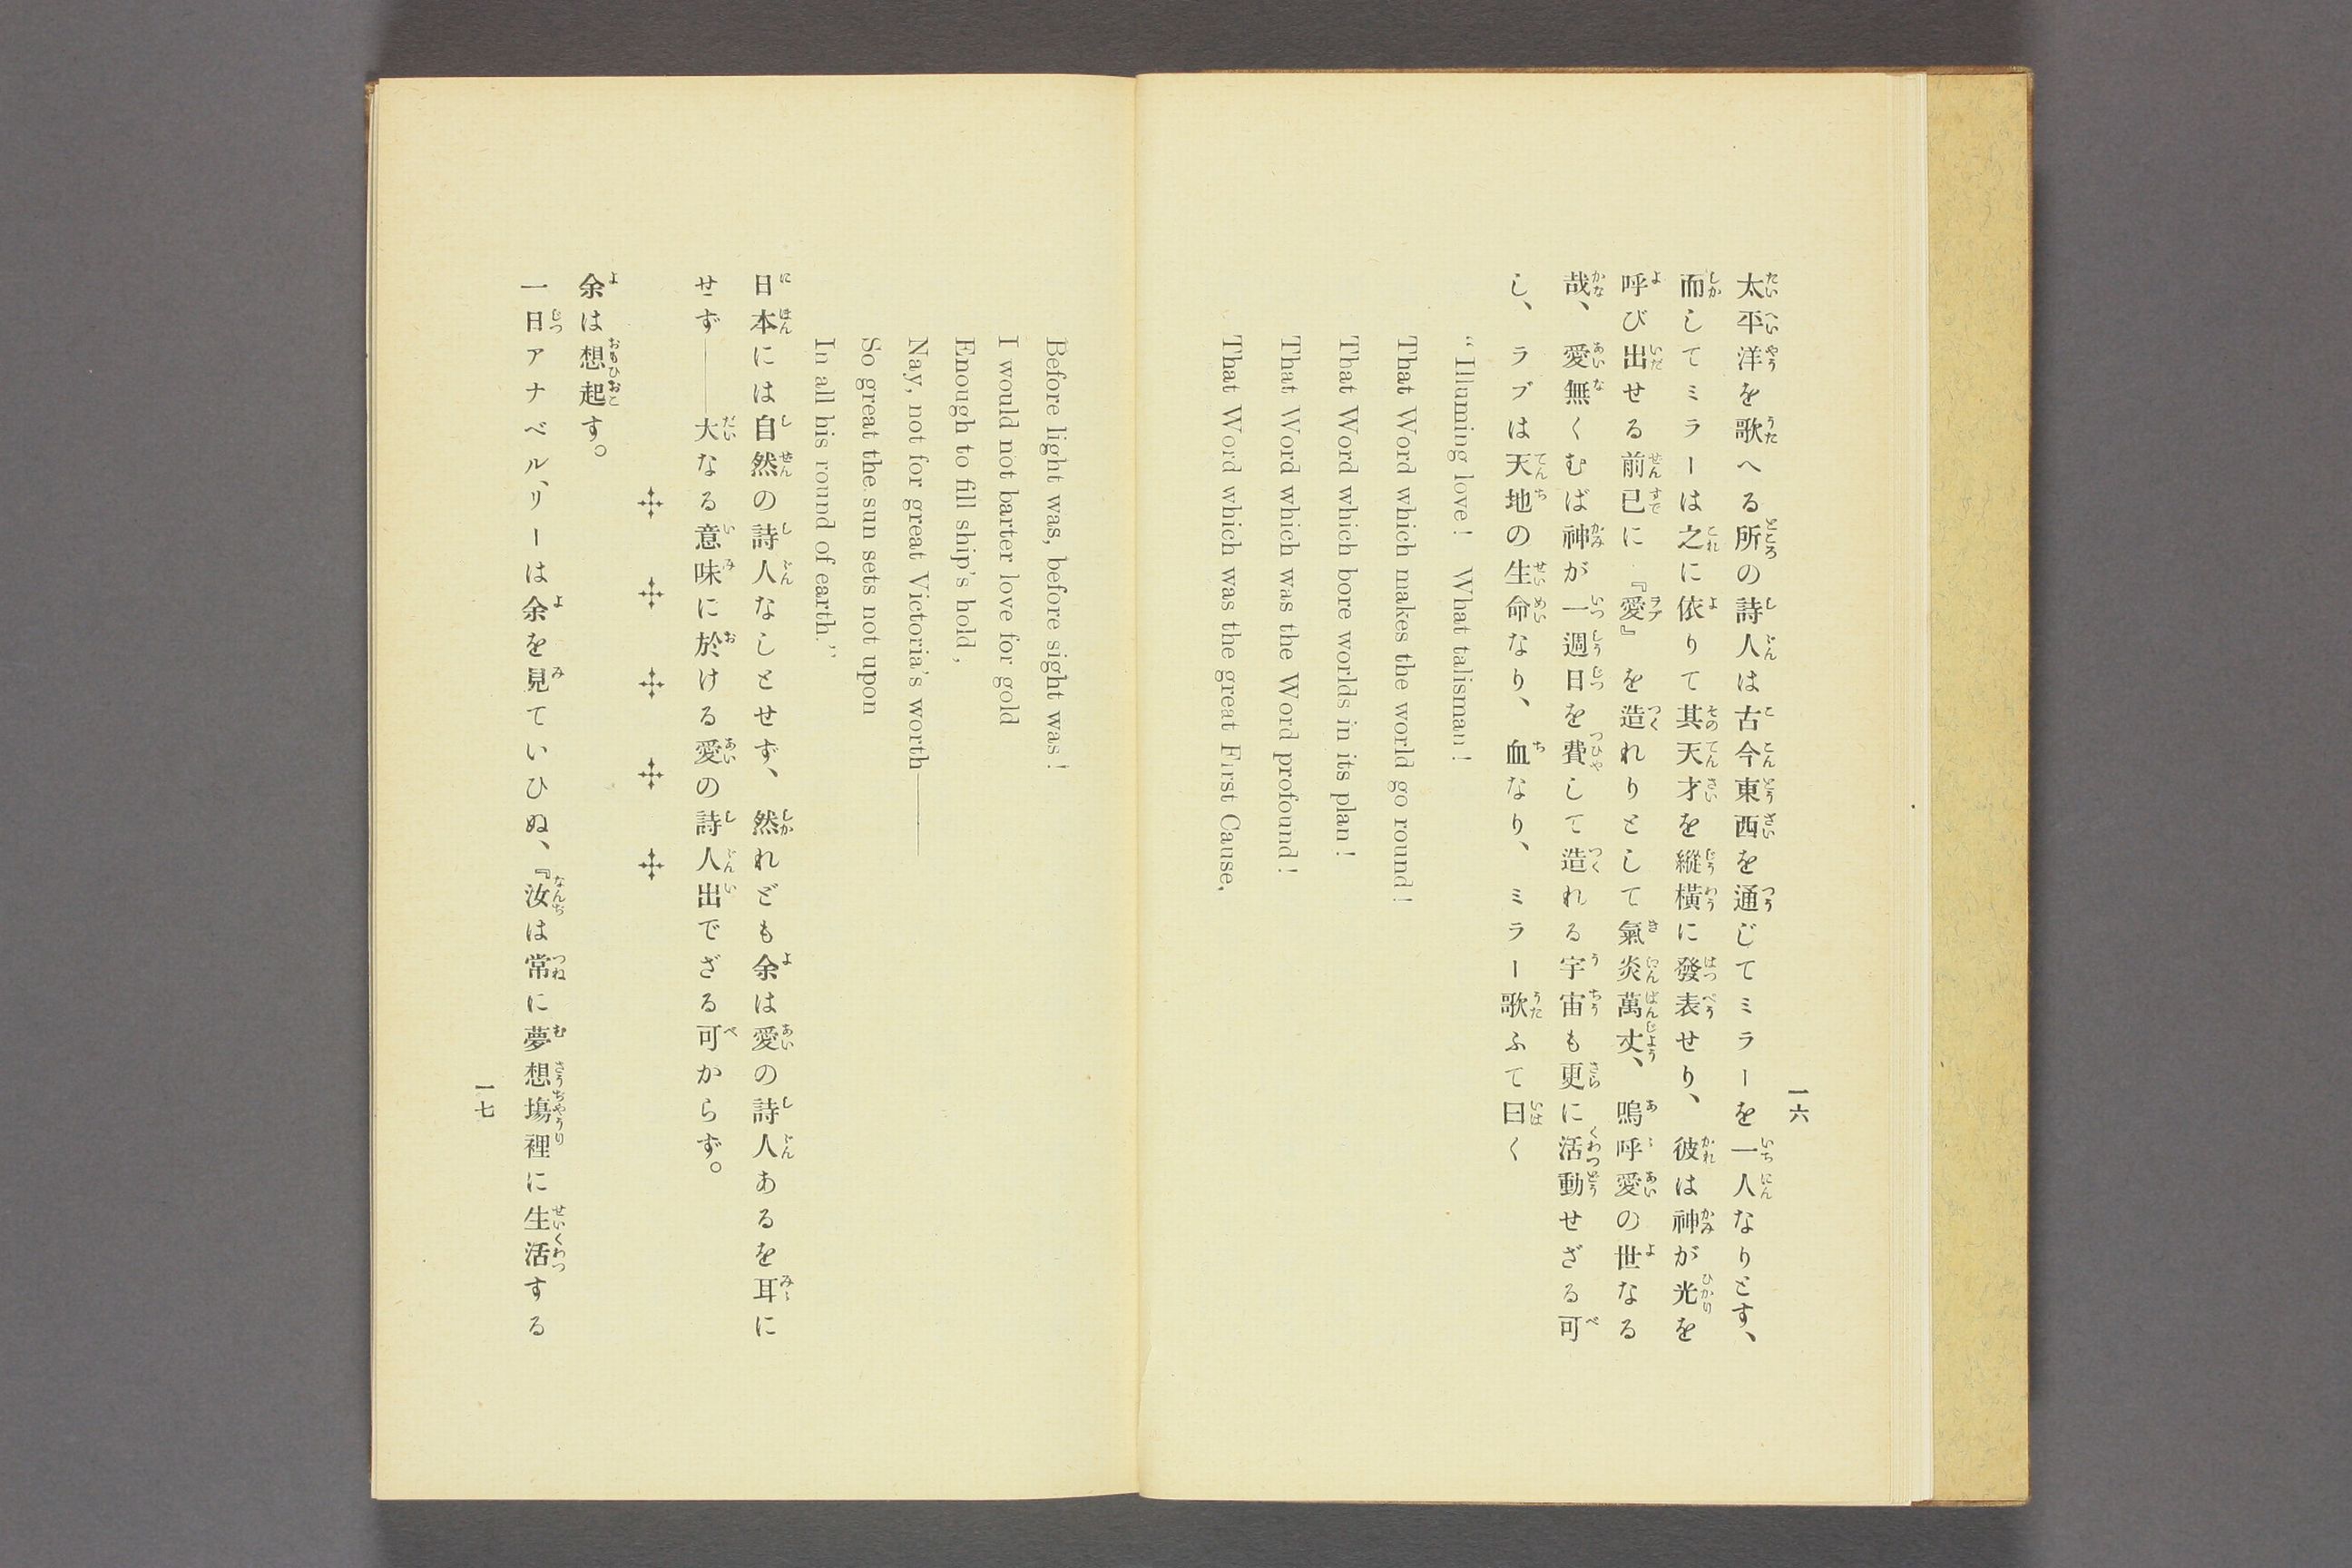 一六
太平洋を歌へる所の詩人は古今東西を通じてミラーを一人なりとす、
而してミラーは之に依りて其天才を縱橫に發表せり、彼は神が光を
呼び出せる前已に『愛』を造れりとして氣炎萬丈、嗚呼愛の世なる
哉、愛無くむば神が一週日を費して造れる宇宙も更に活動せざる可
し、ラブは天地の生命なり、血なり、ミラー歌ふて曰く
“Illuming love! What talisman!
That Word which makes the world go round!
That Word which bore worlds in its plan!
That Word which was the Word profound!
That Word which was the great First Cause,
Before light was, before sight was!
I would not barter love for gold
Enough to fill ship's hold,
Nay, not for great Victoria's worth——
So great the sun sets not upon
In all his round of earth.”
日本には自然の詩人なしとせず、然れども余は愛の詩人あるを耳に
せず——大なる意味に於ける愛の詩人出でざる可からず。
余は想起す。
一日アナベル、リーは余を見ていひぬ、『汝は常に夢想塲裡に生活する
一七